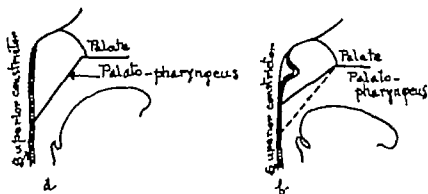 Superior constrictor
Palate
Palato-pharyngeus
a
Superior constrictor
Palate
Palato-
pharyngeus
b